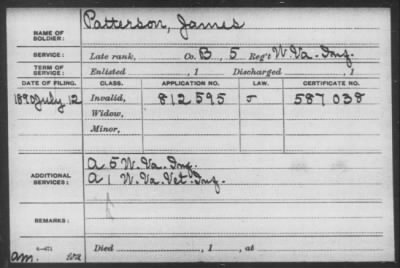 NAME OF SOLDIER: Patterson, James
SERVICE: Late rank, Co. B, 5 Reg't W. Va. Inf.
TERM OF SERVICE: Enlisted , 1 Discharged , 1
DATE OF FILING. CLASS. APPLICATION NO. LAW. CERTIFICATE NO.
1890 July 12 Invalid, 812595 587038
Widow,
Minor,
ADDITIONAL SERVICES: A 5 W. Va. Inf.
A 1 W. Va. Vet. Inf.
REMARKS:
Died , 1 , at
am.